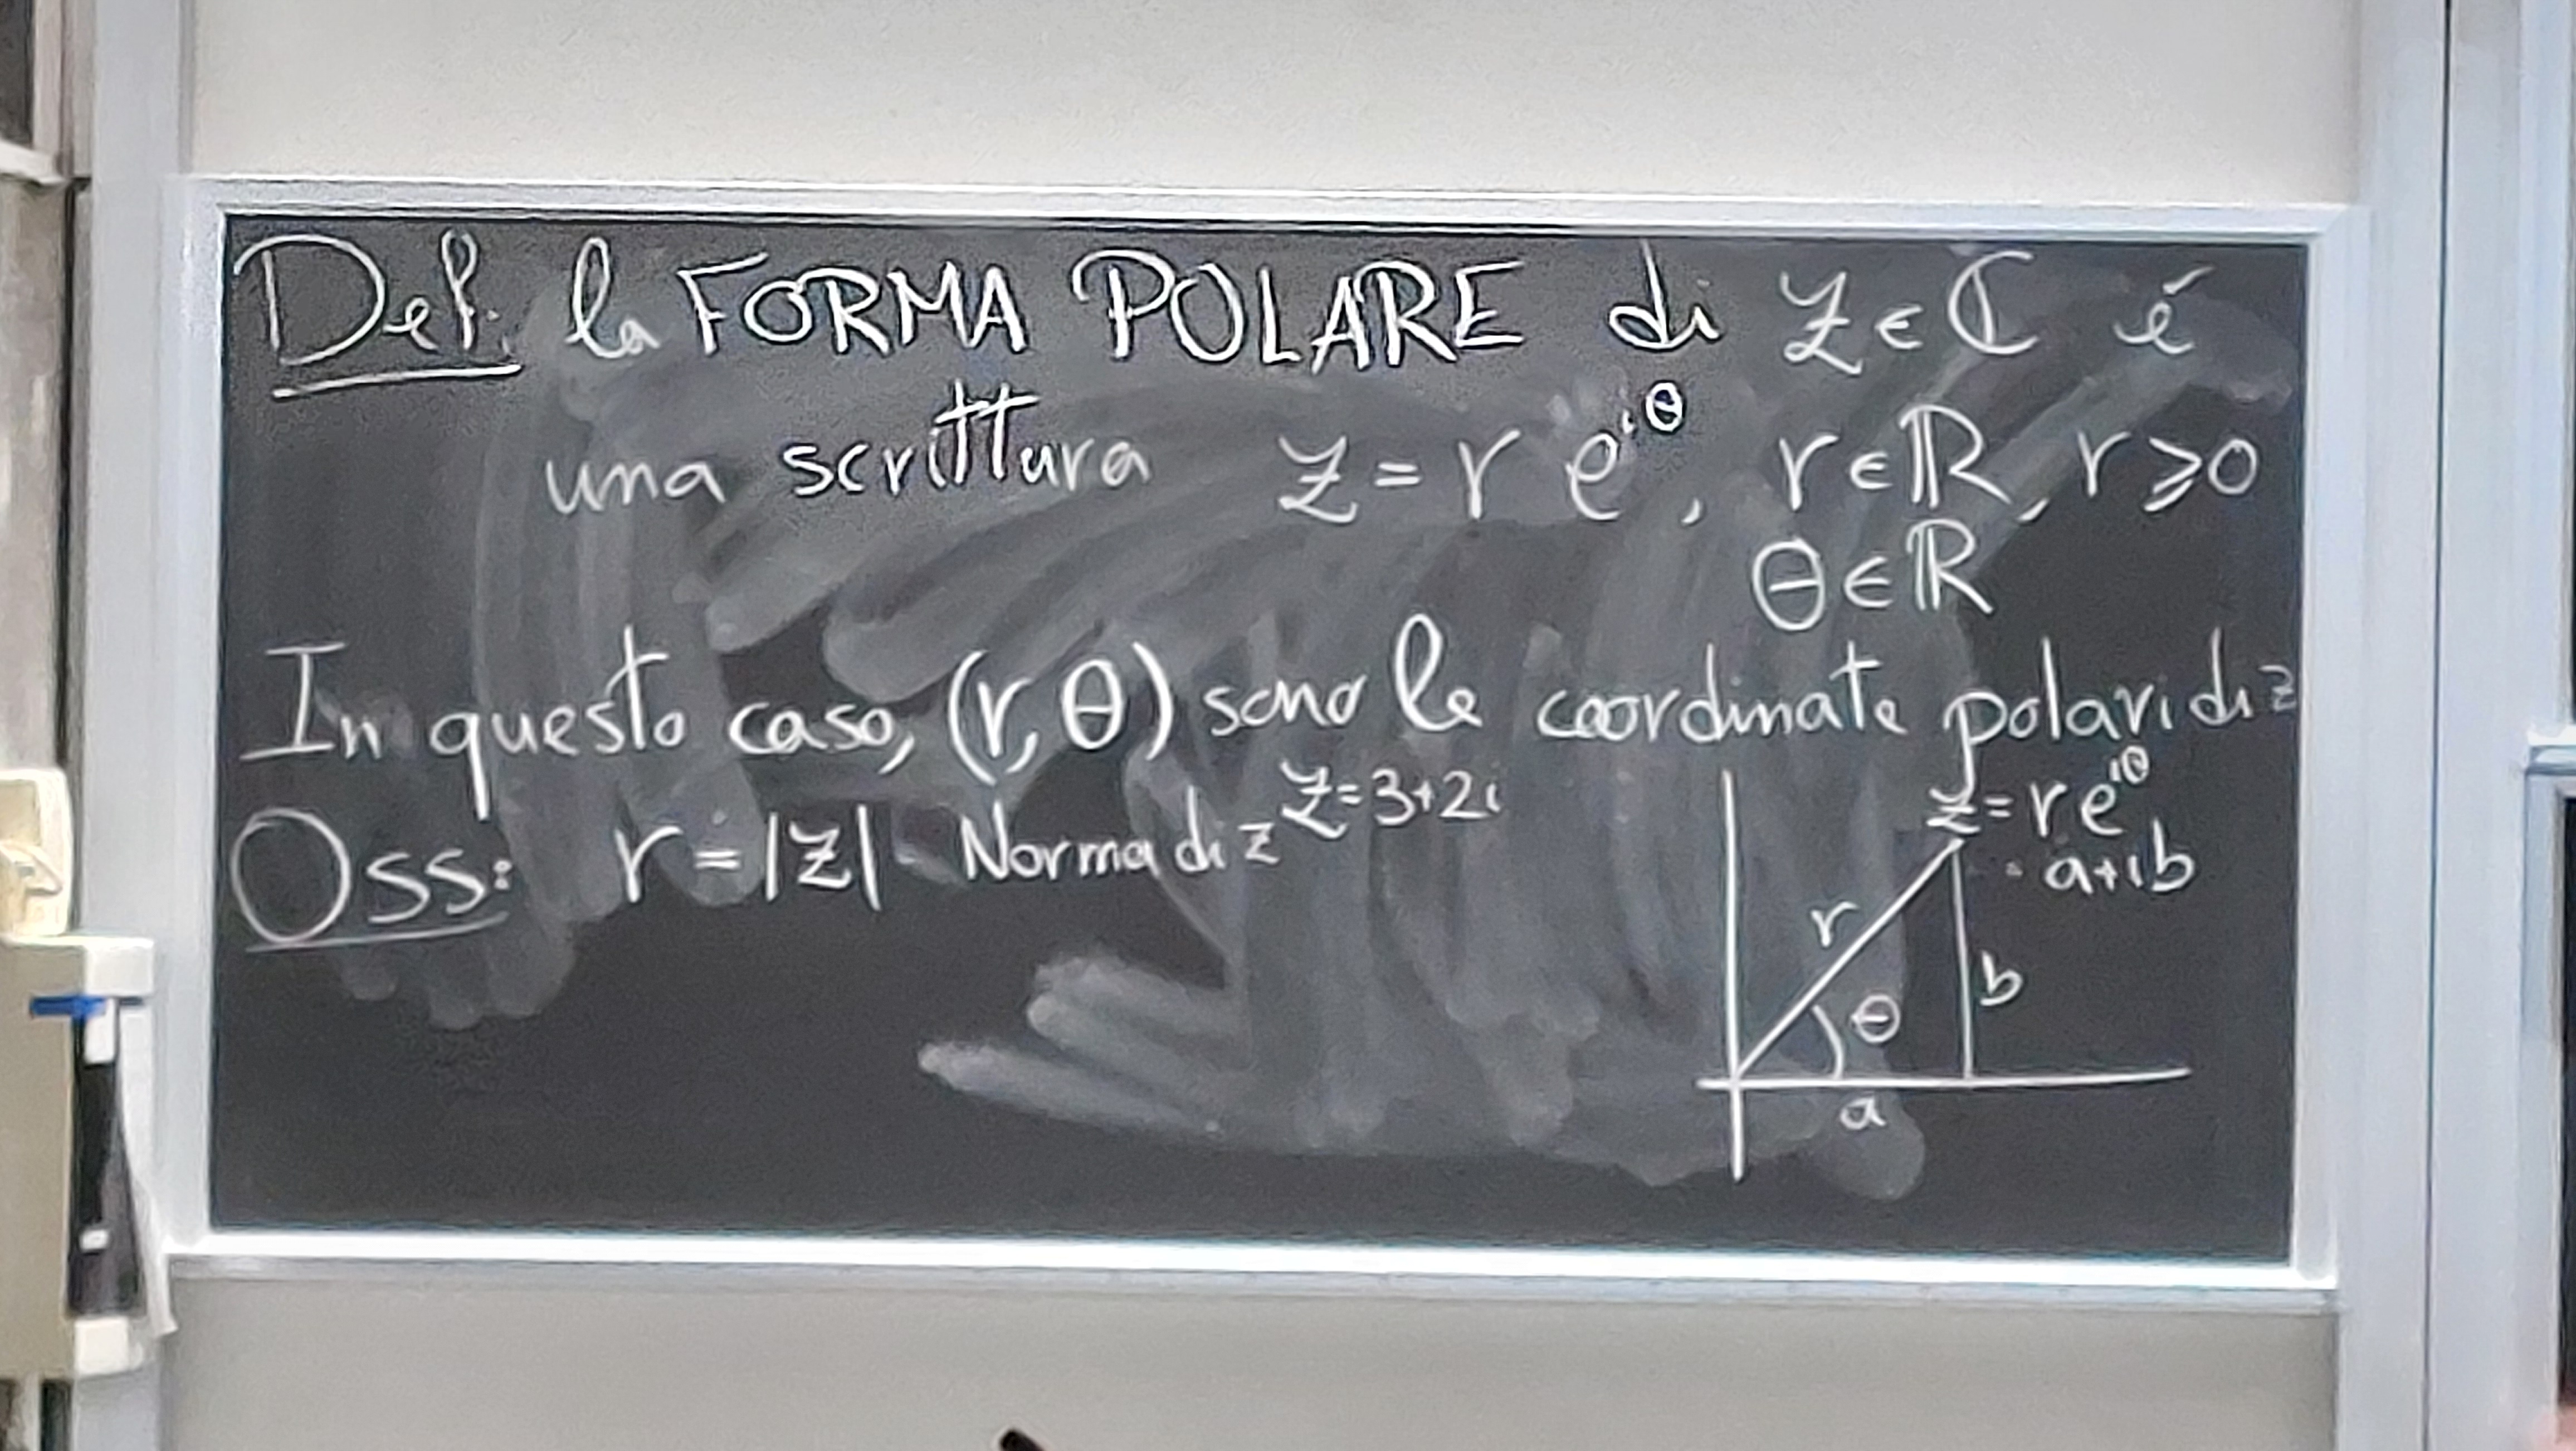 Def. la FORMA POLARE di z ∈ ℂ é
una scrittura z = r e^{iθ}, r ∈ ℝ, r ⩾ 0
θ ∈ ℝ
In questo caso, (r, θ) sono le coordinate polari di z
Oss: r = |z| Norma di z z = 3+2i
z = r e^{iθ}
a+ib
r
b
θ
a